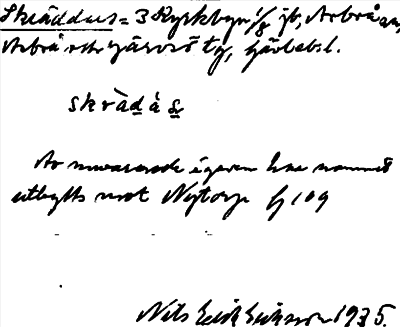 Skräddars = 3 Kyrkbyn 1/8 jb, Arbrå sn,
Arbrå och Järvsö tg, Gävlebs l.
skràdàs
Av nuvarande ägaren har namnet
utbytts mot Nytorp fj 109
Nils Erik Eriksson 1935.